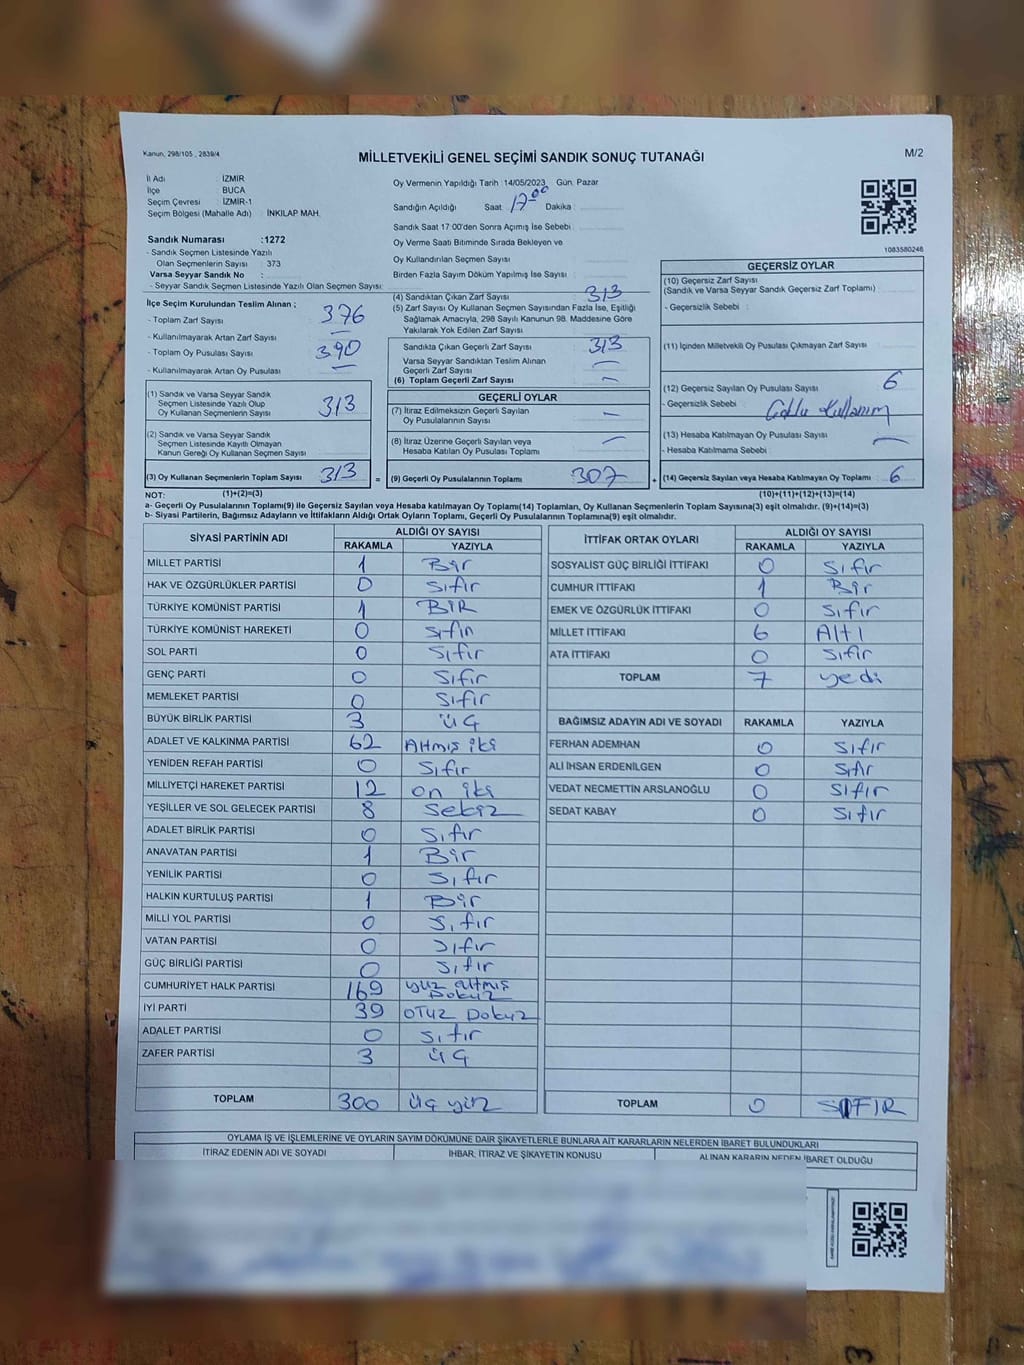 Kanun, 298/105 , 2839/4
MİLLETVEKİLİ GENEL SEÇİMİ SANDIK SONUÇ TUTANAĞI
M/2
İl Adı : İZMİR
İlçe : BUCA
Seçim Çevresi : İZMİR-1
Seçim Bölgesi (Mahalle Adı) : İNKILAP MAH.
Sandık Numarası :1272
- Sandık Seçmen Listesinde Yazılı
Olan Seçmenlerin Sayısı : 373
Varsa Seyyar Sandık No :
- Seyyar Sandık Seçmen Listesinde Yazılı Olan Seçmen Sayısı:
Oy Vermenin Yapıldığı Tarih :14/05/2023 Gün: Pazar
Sandığın Açıldığı Saat 17:00 Dakika :
Sandık Saat 17:00'den Sonra Açımış İse Sebebi :
Oy Verme Saati Bitiminde Sırada Bekleyen ve
Oy Kullandırılan Seçmen Sayısı
Birden Fazla Sayım Döküm Yapılmış İse Sayısı :
1083580246
İlçe Seçim Kurulundan Teslim Alınan ;
- Toplam Zarf Sayısı 376
- Kullanılmayarak Artan Zarf Sayısı —
- Toplam Oy Pusulası Sayısı 390
- Kullanılmayarak Artan Oy Pusulası —
(1) Sandık ve Varsa Seyyar Sandık
Seçmen Listesinde Yazılı Olup
Oy Kullanan Seçmenlerin Sayısı 313
(2) Sandık ve Varsa Seyyar Sandık
Seçmen Listesinde Kayıtlı Olmayan
Kanun Gereği Oy Kullanan Seçmen Sayısı
(3) Oy Kullanan Seçmenlerin Toplam Sayısı 313 =
(1)+(2)=(3)
(4) Sandıktan Çıkan Zarf Sayısı 313
(5) Zarf Sayısı Oy Kullanan Seçmen Sayısından Fazla İse, Eşitliği
Sağlamak Amacıyla, 298 Sayılı Kanunun 98. Maddesine Göre
Yakılarak Yok Edilen Zarf Sayısı
Sandıkta Çıkan Geçerli Zarf Sayısı 313
Varsa Seyyar Sandıktan Teslim Alınan
Geçerli Zarf Sayısı —
(6) Toplam Geçerli Zarf Sayısı —
GEÇERLİ OYLAR
(7) İtiraz Edilmeksizin Geçerli Sayılan
Oy Pusulalarının Sayısı —
(8) İtiraz Üzerine Geçerli Sayılan veya
Hesaba Katılan Oy Pusulası Toplamı —
(9) Geçerli Oy Pusulalarının Toplamı 307 +
GEÇERSİZ OYLAR
(10) Geçersiz Zarf Sayısı
(Sandık ve Varsa Seyyar Sandık Geçersiz Zarf Toplamı)
- Geçersizlik Sebebi :
(11) İçinden Milletvekili Oy Pusulası Çıkmayan Zarf Sayısı
(12) Geçersiz Sayılan Oy Pusulası Sayısı 6
- Geçersizlik Sebebi Çoklu Kullanım
(13) Hesaba Katılmayan Oy Pusulası Sayısı —
- Hesaba Katılmama Sebebi
(14) Geçersiz Sayılan veya Hesaba Katılmayan Oy Toplamı 6
(10)+(11)+(12)+(13)=(14)
NOT:
a- Geçerli Oy Pusulalarının Toplamı(9) ile Geçersiz Sayılan veya Hesaba katılmayan Oy Toplamı(14) Toplamları, Oy Kullanan Seçmenlerin Toplam Sayısına(3) eşit olmalıdır. (9)+(14)=(3)
b- Siyasi Partilerin, Bağımsız Adayların ve İttifakların Aldığı Ortak Oyların Toplamı, Geçerli Oy Pusulalarının Toplamına(9) eşit olmalıdır.
SİYASİ PARTİNİN ADI ALDIĞI OY SAYISI
RAKAMLA YAZIYLA
MİLLET PARTİSİ 1 Bir
HAK VE ÖZGÜRLÜKLER PARTİSİ 0 Sıfır
TÜRKİYE KOMÜNİST PARTİSİ 1 BİR
TÜRKİYE KOMÜNİST HAREKETİ 0 Sıfır
SOL PARTİ 0 Sıfır
GENÇ PARTİ 0 Sıfır
MEMLEKET PARTİSİ 0 Sıfır
BÜYÜK BİRLİK PARTİSİ 3 üç
ADALET VE KALKINMA PARTİSİ 62 Altmış iki
YENİDEN REFAH PARTİSİ 0 Sıfır
MİLLİYETÇİ HAREKET PARTİSİ 12 on iki
YEŞİLLER VE SOL GELECEK PARTİSİ 8 Sekiz
ADALET BİRLİK PARTİSİ 0 Sıfır
ANAVATAN PARTİSİ 1 Bir
YENİLİK PARTİSİ 0 Sıfır
HALKIN KURTULUŞ PARTİSİ 1 Bir
MİLLİ YOL PARTİSİ 0 Sıfır
VATAN PARTİSİ 0 Sıfır
GÜÇ BİRLİĞİ PARTİSİ 0 Sıfır
CUMHURİYET HALK PARTİSİ 169 yüz altmış Dokuz
İYİ PARTİ 39 OTUZ Dokuz
ADALET PARTİSİ 0 Sıfır
ZAFER PARTİSİ 3 üç
TOPLAM 300 üç yüz
İTTİFAK ORTAK OYLARI ALDIĞI OY SAYISI
RAKAMLA YAZIYLA
SOSYALİST GÜÇ BİRLİĞİ İTTİFAKI 0 Sıfır
CUMHUR İTTİFAKI 1 Bir
EMEK VE ÖZGÜRLÜK İTTİFAKI 0 Sıfır
MİLLET İTTİFAKI 6 Altı
ATA İTTİFAKI 0 Sıfır
TOPLAM 7 yedi
BAĞIMSIZ ADAYIN ADI VE SOYADI RAKAMLA YAZIYLA
FERHAN ADEMHAN 0 Sıfır
ALİ İHSAN ERDENİLGEN 0 Sıfır
VEDAT NECMETTİN ARSLANOĞLU 0 Sıfır
SEDAT KABAY 0 Sıfır
TOPLAM 0 SIFIR
OYLAMA İŞ VE İŞLEMLERİNE VE OYLARIN SAYIM DÖKÜMÜNE DAİR ŞİKAYETLERLE BUNLARA AİT KARARLARIN NELERDEN İBARET BULUNDUKLARI
İTİRAZ EDENİN ADI VE SOYADI İHBAR, İTİRAZ VE ŞİKAYETİN KONUSU ALINAN KARARIN NEDEN İBARET OLDUĞU